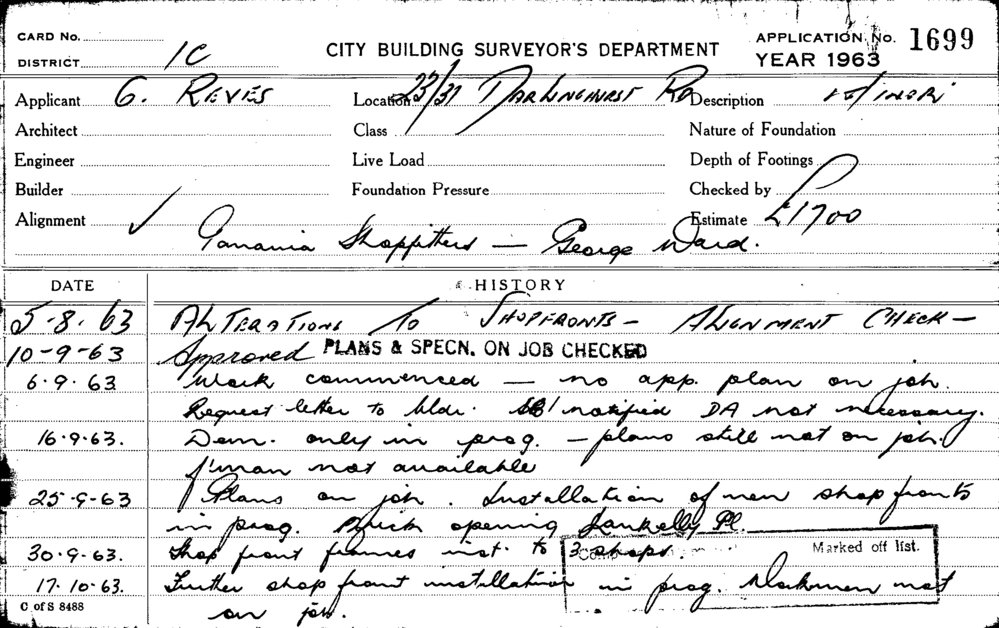 CARD No.
DISTRICT 1C
CITY BUILDING SURVEYOR'S DEPARTMENT
APPLICATION No. 1699
YEAR 1963
Applicant G. REVES Location 23/37 DARLINGHURST RD Description MINOR
Architect Class Nature of Foundation
Engineer Live Load Depth of Footings
Builder Foundation Pressure Checked by
Alignment ✓ Estimate £1700
Shopfitters — George Ward.
DATE HISTORY
5-8-63 ALTERATIONS TO SHOPFRONTS — ALIGNMENT CHECK —
10-9-63 Approved PLANS & SPECN. ON JOB CHECKED
6.9.63 Work commenced — no app. plan on job.
Request letter to bldr. notified DA not necessary.
16.9.63. Dem. only in prog. — plans still not on job.
f'man not available
25-9-63 Plans on job. Installation of new shop fronts
in prog. opening Lankelly Pl.
30.9.63. Shop front frames inst. to 3 shops.
Marked off list.
17.10.63. Further shop front installation in prog. Workmen not
on job.
C of S 8488